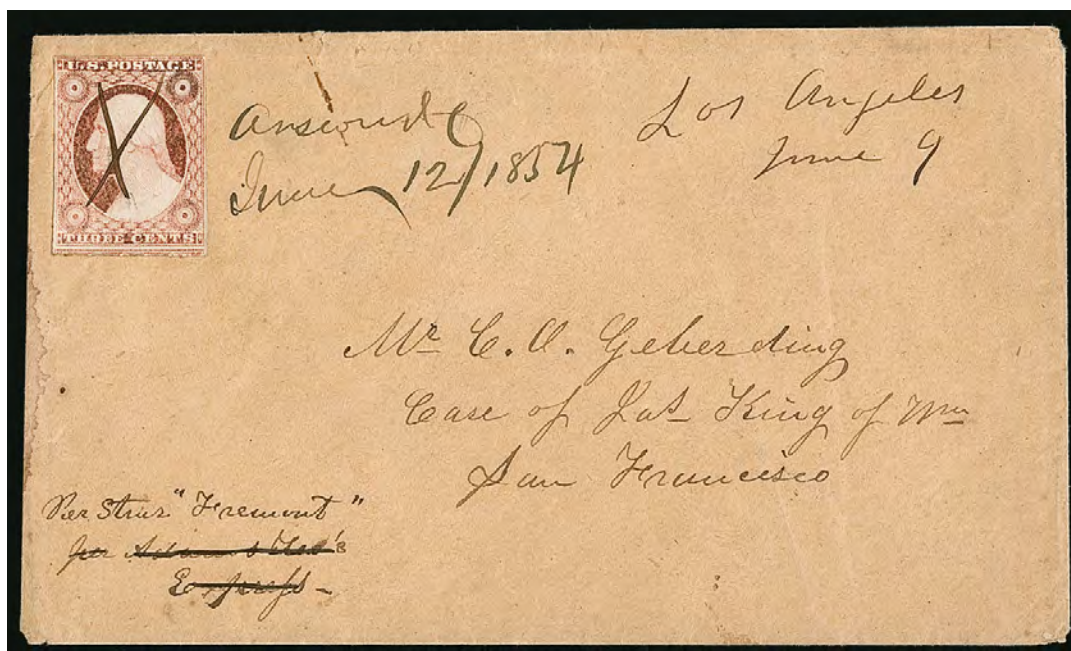 U.S. POSTAGE
THREE CENTS
Answered
June 12/1854
Los Angeles
June 9
Mr C. O. Geberding
Care of Jas King of Wm
San Francisco
Per Stmr "Fremont"
per Adams & Co's
Express -